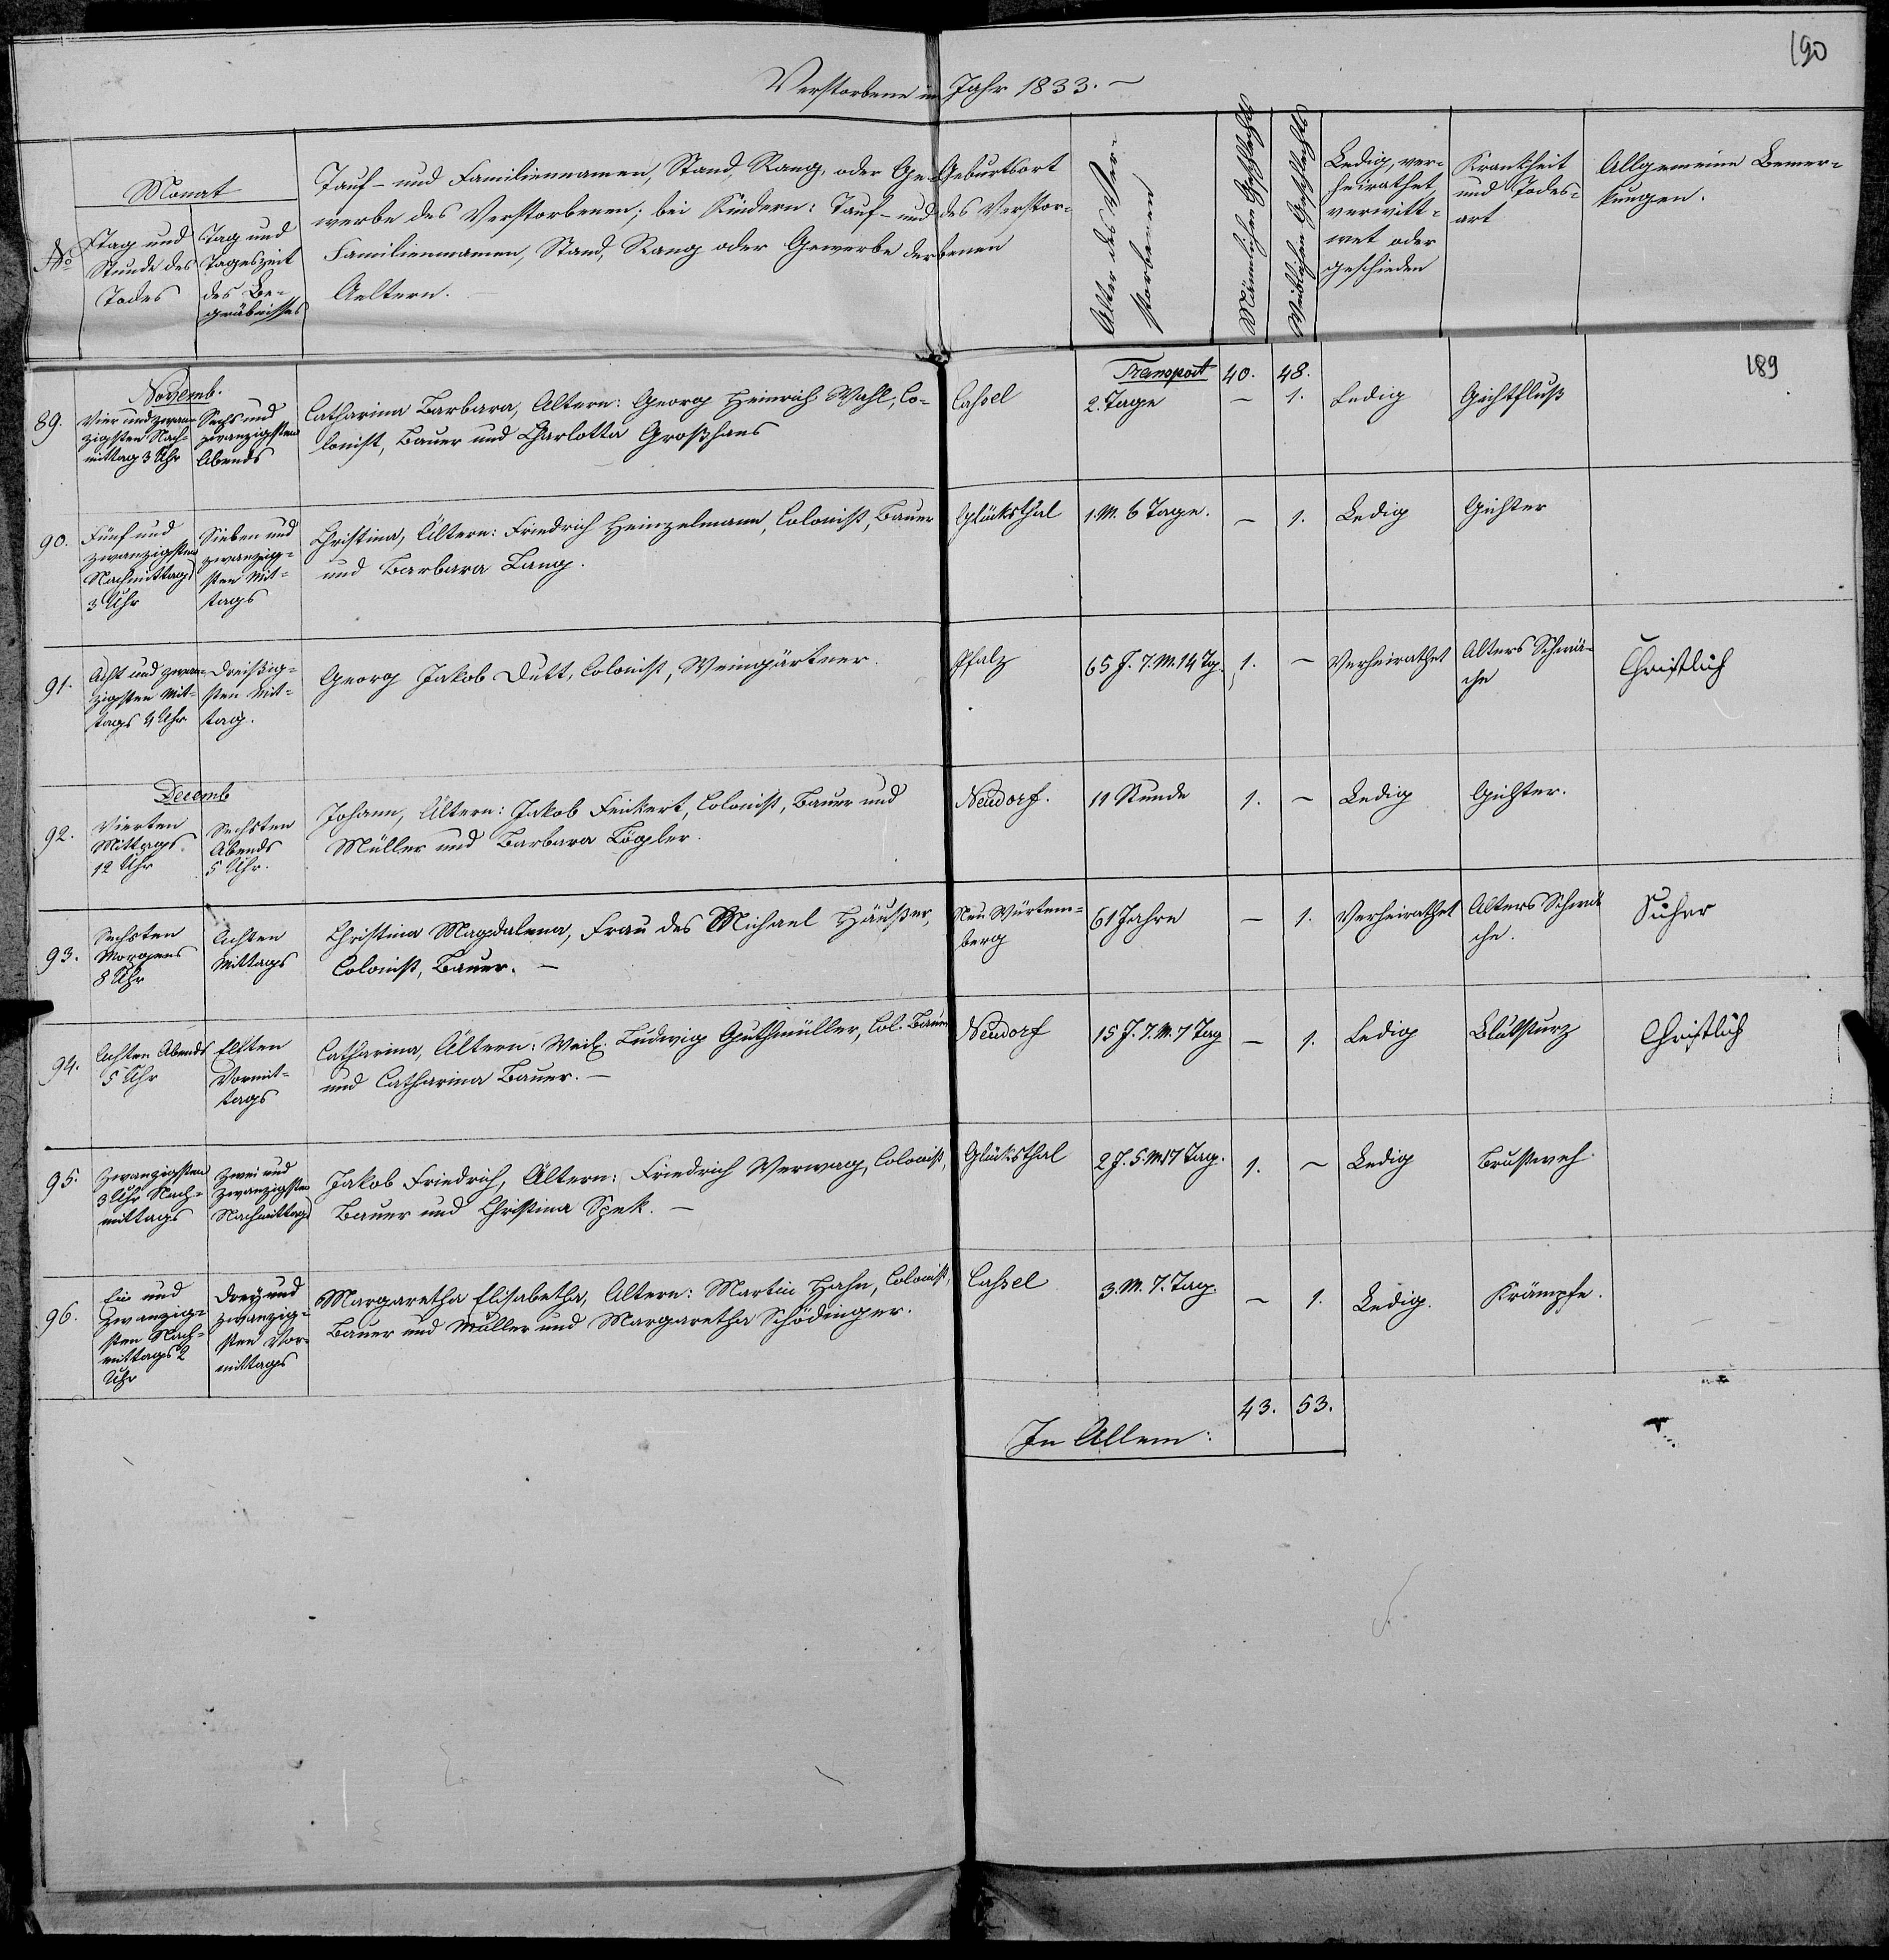 190
Verstorbene im Jahr 1833.
No
Monat
Tag und
Stunde des
Todes
Tag und
Tageszeit
des Be-
gräbnisses
Tauf- und Familiennamen, Stand, Rang oder Ge-
werbe des Verstorbenen; bei Kindern: Tauf- und
Familiennamen, Stand, Rang oder Gewerbe der
Aeltern.
Geburtsort
des Verstor-
benen
Alter des Ver-
storbenen
Männlichen Geschlechts
Weiblichen Geschlechts
Ledig, ver-
heirathet,
verwitt-
wet oder
geschieden
Krankheit
und Todes-
art
Allgemeine Bemer-
kungen.
189
Transport 40. 48.
Novemb.
89.
Vier und zwan-
zigsten Nach-
mittag 3 Uhr
Sechs und
zwanzigsten
Abends
Catharina Barbara, Altern: Georg Heinrich Wahl, Co-
lonist, Bauer und Charlotta Großhans
Cassel
2. Tage
– 1.
Ledig
Gichtfluß
90.
Fünf und
zwanzigsten
Nachmittags
3 Uhr
Sieben und
zwanzig-
sten Mit-
tags
Christina, Ältern: Friedrich Heinzelmann, Colonist, Bauer
und Barbara Lang.
Glücksthal
1. M. 6 Tage.
– 1.
Ledig
Gichter
91.
Acht und zwan-
zigsten Mit-
tags 4 Uhr
Dreißig-
sten Mit-
tag.
Georg Jakob Dutt, Colonist, Weingärtner.
Pfalz
65 J. 7. M. 14 Tg.
1. –
Verheirathet
Alters Schwä-
che
Christlich
Decemb
92.
Vierten
Mittags
12 Uhr
Sechsten
Abends
5 Uhr.
Johann, Ältern: Jakob Feickert, Colonist, Bauer und
Müller und Barbara Bögler.
Neudorf.
11 Stunde
1. –
Ledig
Gichter.
93.
Sechsten
Morgens
8 Uhr
Achten
Mittags
Christina Magdalena, Frau des Michael Häußer,
Colonist, Bauer. –
Neu Würtem-
berg
61 Jahre
– 1.
Verheirathet
Alters Schwä
che.
94.
Achten Abends
5 Uhr
Elften
Vormit-
tags
Catharina, Ältern: Weil. Ludwig Guthmüller, Col. Bauer
und Catharina Bauer. –
Neudorf
15 J. 7. M. 7 Tag
– 1.
Ledig
Blutsturz
Christlich
95.
Zwanzigsten
3 Uhr Nach-
mittags
Zwei und
zwanzigsten
Nachmittags
Jakob Friedrich, Ältern: Friedrich Werwag, Colonist,
Bauer und Christina Spek. –
Glücksthal
2 J. 5. M 17 Tag.
1. –
Ledig
Brustweh
96.
Ein und
zwanzig-
sten Nach-
mittags 2
Uhr
Drey und
zwanzig-
sten Vor-
mittags
Margaretha Elisabetha, Altern: Martin Hahn, Colonist,
Bauer und Müller und Margaretha Schödinger.
Cassel
3. M. 7. Tag.
– 1.
Ledig.
Krämpfe.
In Allem: 43. 53.